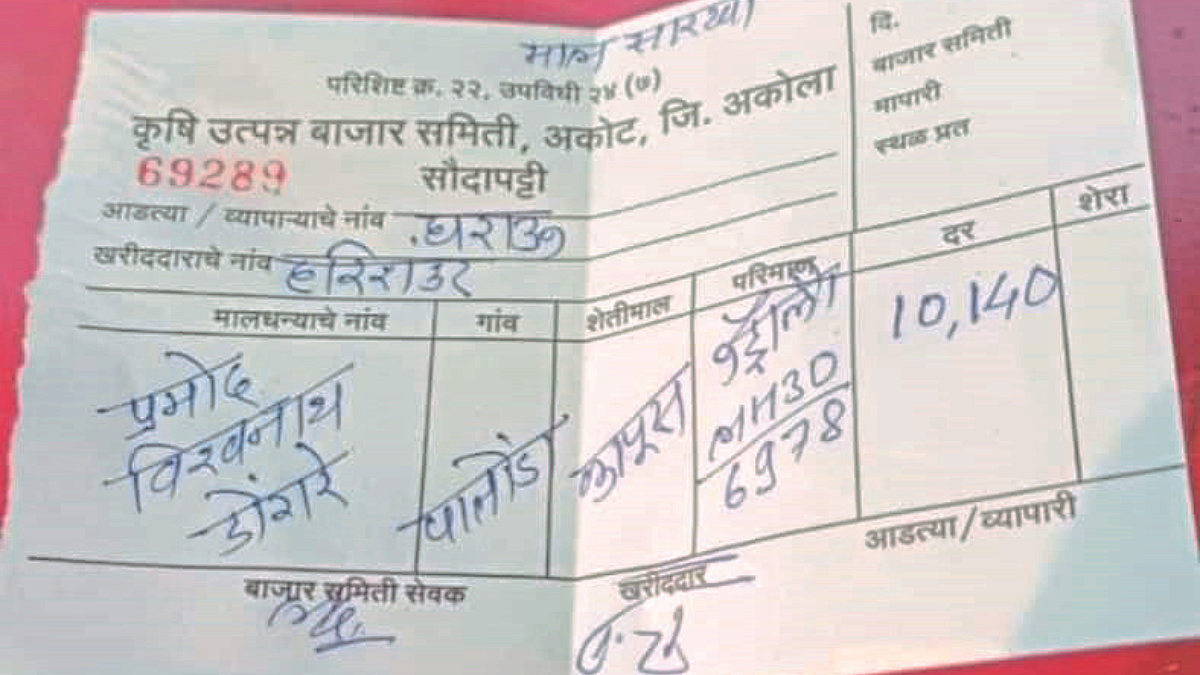 माल सारखा
परिशिष्ट क्र. २२, उपविधी २४ (७)
कृषि उत्पन्न बाजार समिती, अकोट, जि. अकोला
69289 सौदापट्टी
दि.
बाजार समिती
मापारी
स्थळ प्रत
आडत्या / व्यापाऱ्याचे नांव
खरीददाराचे नांव हरिराऊत
मालधन्याचे नांव गांव शेतीमाल परिमाण दर शेरा
प्रमोद
विश्वनाथ
डोंगरे
पालोडा
कापूस
MH30
6978
10,140
बाजार समिती सेवक खरीददार आडत्या/व्यापारी